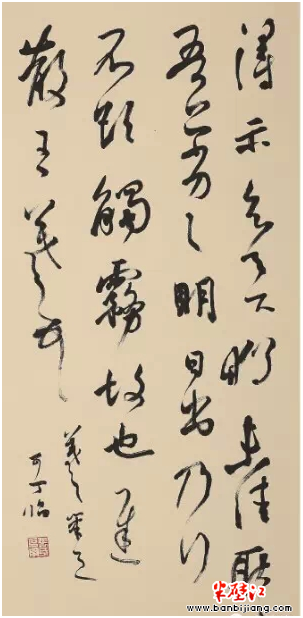 得示知足下猶未佳耿
吾亦劣々明日出乃行
不欲觸霧故也遲
散王羲之頓首
羲之筆意
丁臨
半壁江
www.banbijiang.com